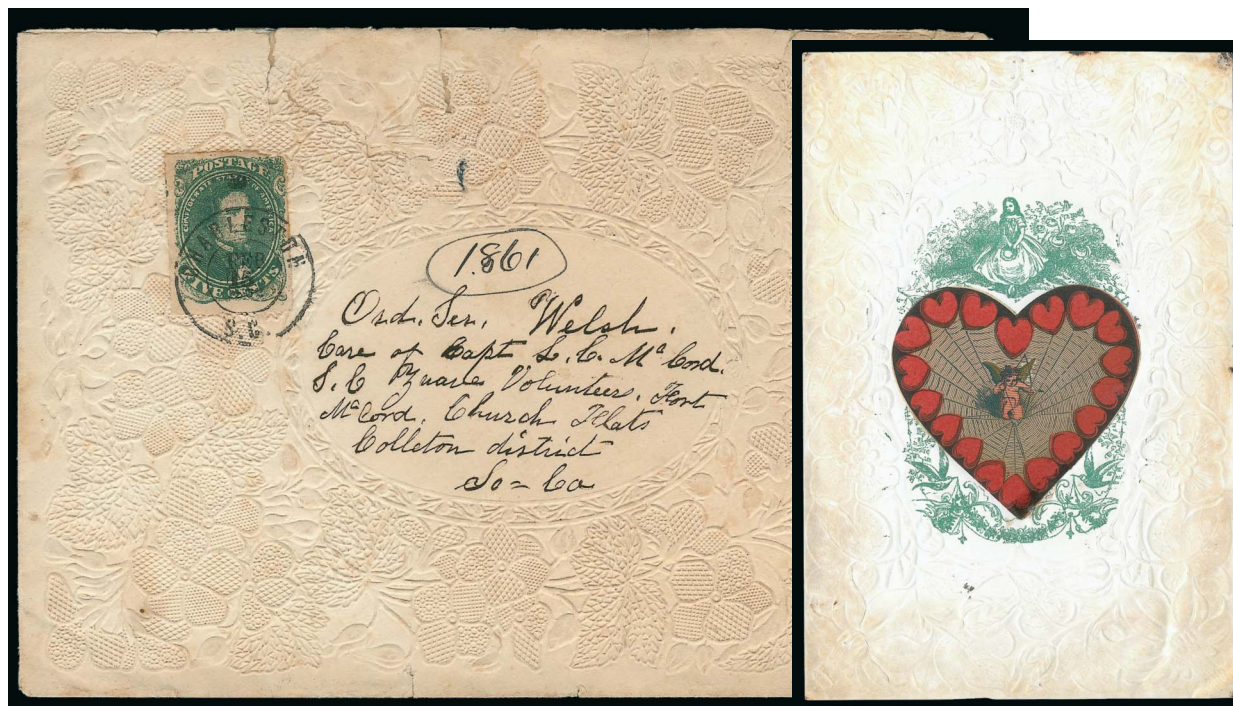 POSTAGE
CONFEDERATE STATES OF AMERICA
FIVE CENTS
CHARLESTON
FEB
S.C.
1861
Ord. Ser. Welsh.
Care of Capt L. C. McCord.
S. C Volunteers. Fort
McCord. Church Flats
Colleton district
So = Ca